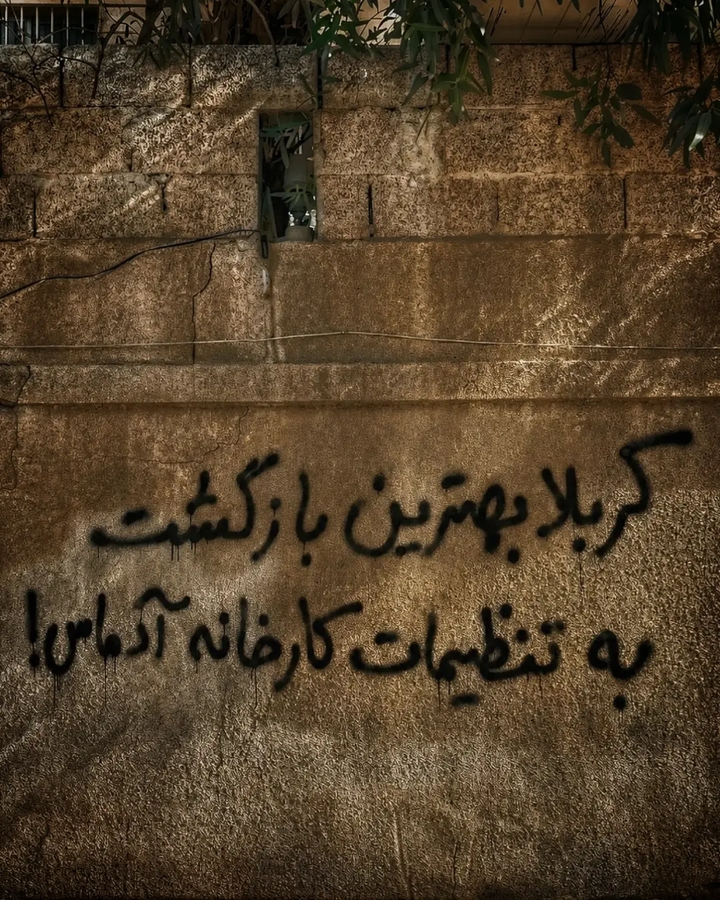 کربلا بهترین بازگشت
به تنظیمات کارخانه آدماس!